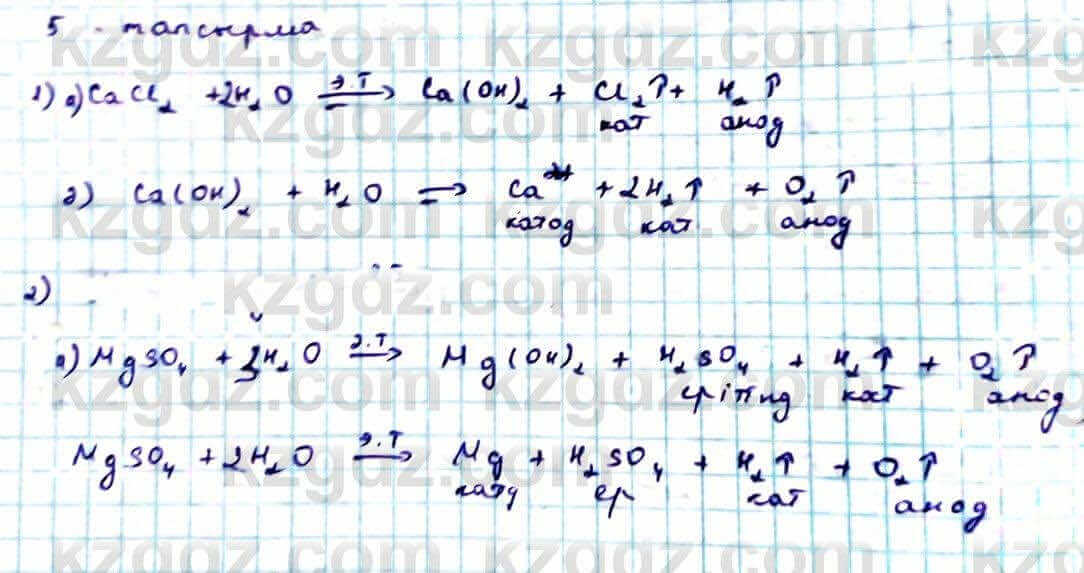 5 - тапсырма
1) а) CaCl₂ + 2H₂O э.т → Ca(OH)₂ + Cl₂↑ + H₂↑
кат анод
2) Ca(OH)₂ + H₂O ⇒ Ca²⁺ + 2H₂↑ + O₂↑
катод кат анод
2)
а) MgSO₄ + 3H₂O э.т → Mg(OH)₂ + H₂SO₄ + H₂↑ + O₂↑
ерітінд кат анод
MgSO₄ + 2H₂O э.т → Mg + H₂SO₄ + H₂↑ + O₂↑
катд ер кат анод
kzgdz.com